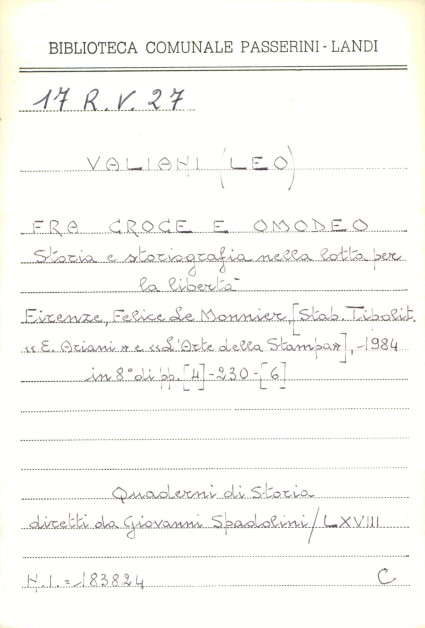 BIBLIOTECA COMUNALE PASSERINI-LANDI
17 R. V. 27
VALIANI (LEO)
FRA CROCE E OMODEO
Storia e storiografia nella lotta per
la libertà
Firenze, Felice Le Monnier, [Stab. Tipolit.
«E. Ariani» e «L'Arte della Stampa»], 1984
in 8° di pp. [4]-230-[6]
Quaderni di Storia
diretti da Giovanni Spadolini/LXVIII
N.I. = 183824
C